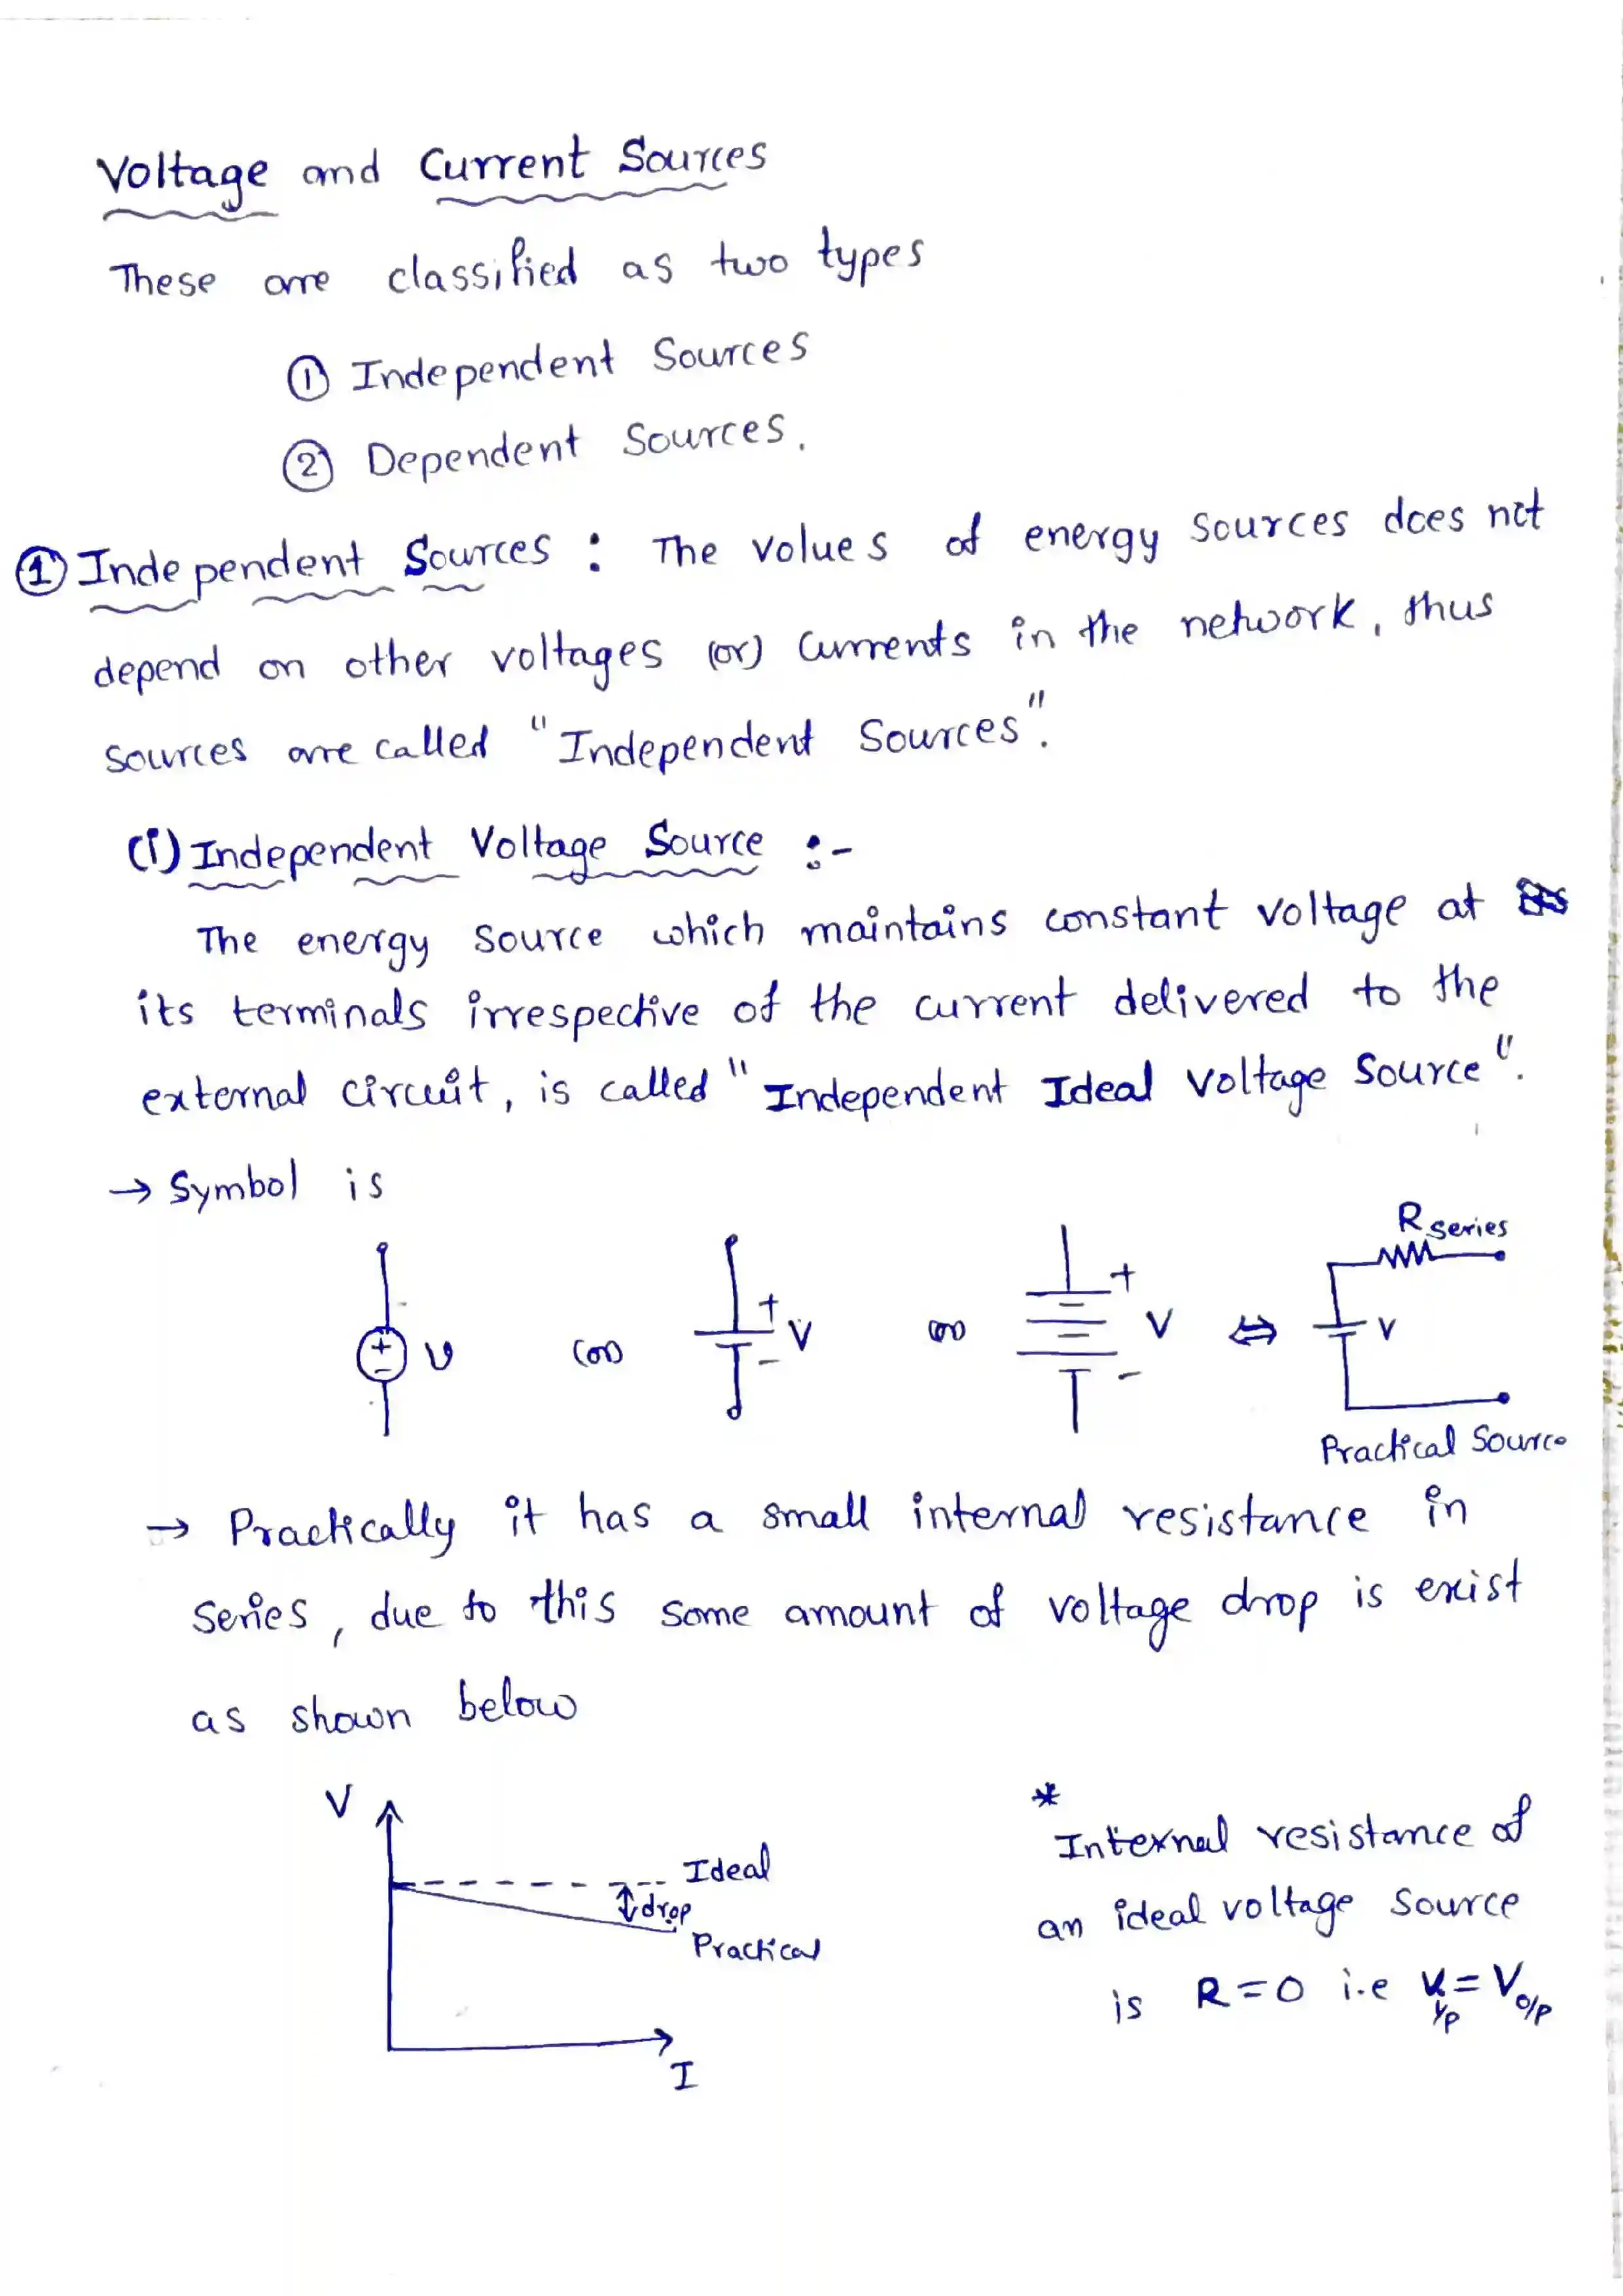 Voltage and Current Sources
These are classified as two types
① Independent Sources
② Dependent Sources.
① Independent Sources : The values of energy sources does not
depend on other voltages (or) Currents in the network, thus
sources are called "Independent Sources".
(i) Independent Voltage Source :-
The energy source which maintains constant voltage at
its terminals irrespective of the current delivered to the
external circuit, is called "Independent Ideal Voltage Source".
→ Symbol is
R series
+ - V (or) + - V (or) + - V ⇔ V
Practical Source
→ Practically it has a small internal resistance in
series, due to this some amount of voltage drop is exist
as shown below
V
Ideal
drop
Practical
I
*
Internal resistance of
an ideal voltage source
is R=0 i.e V i/p = V o/p